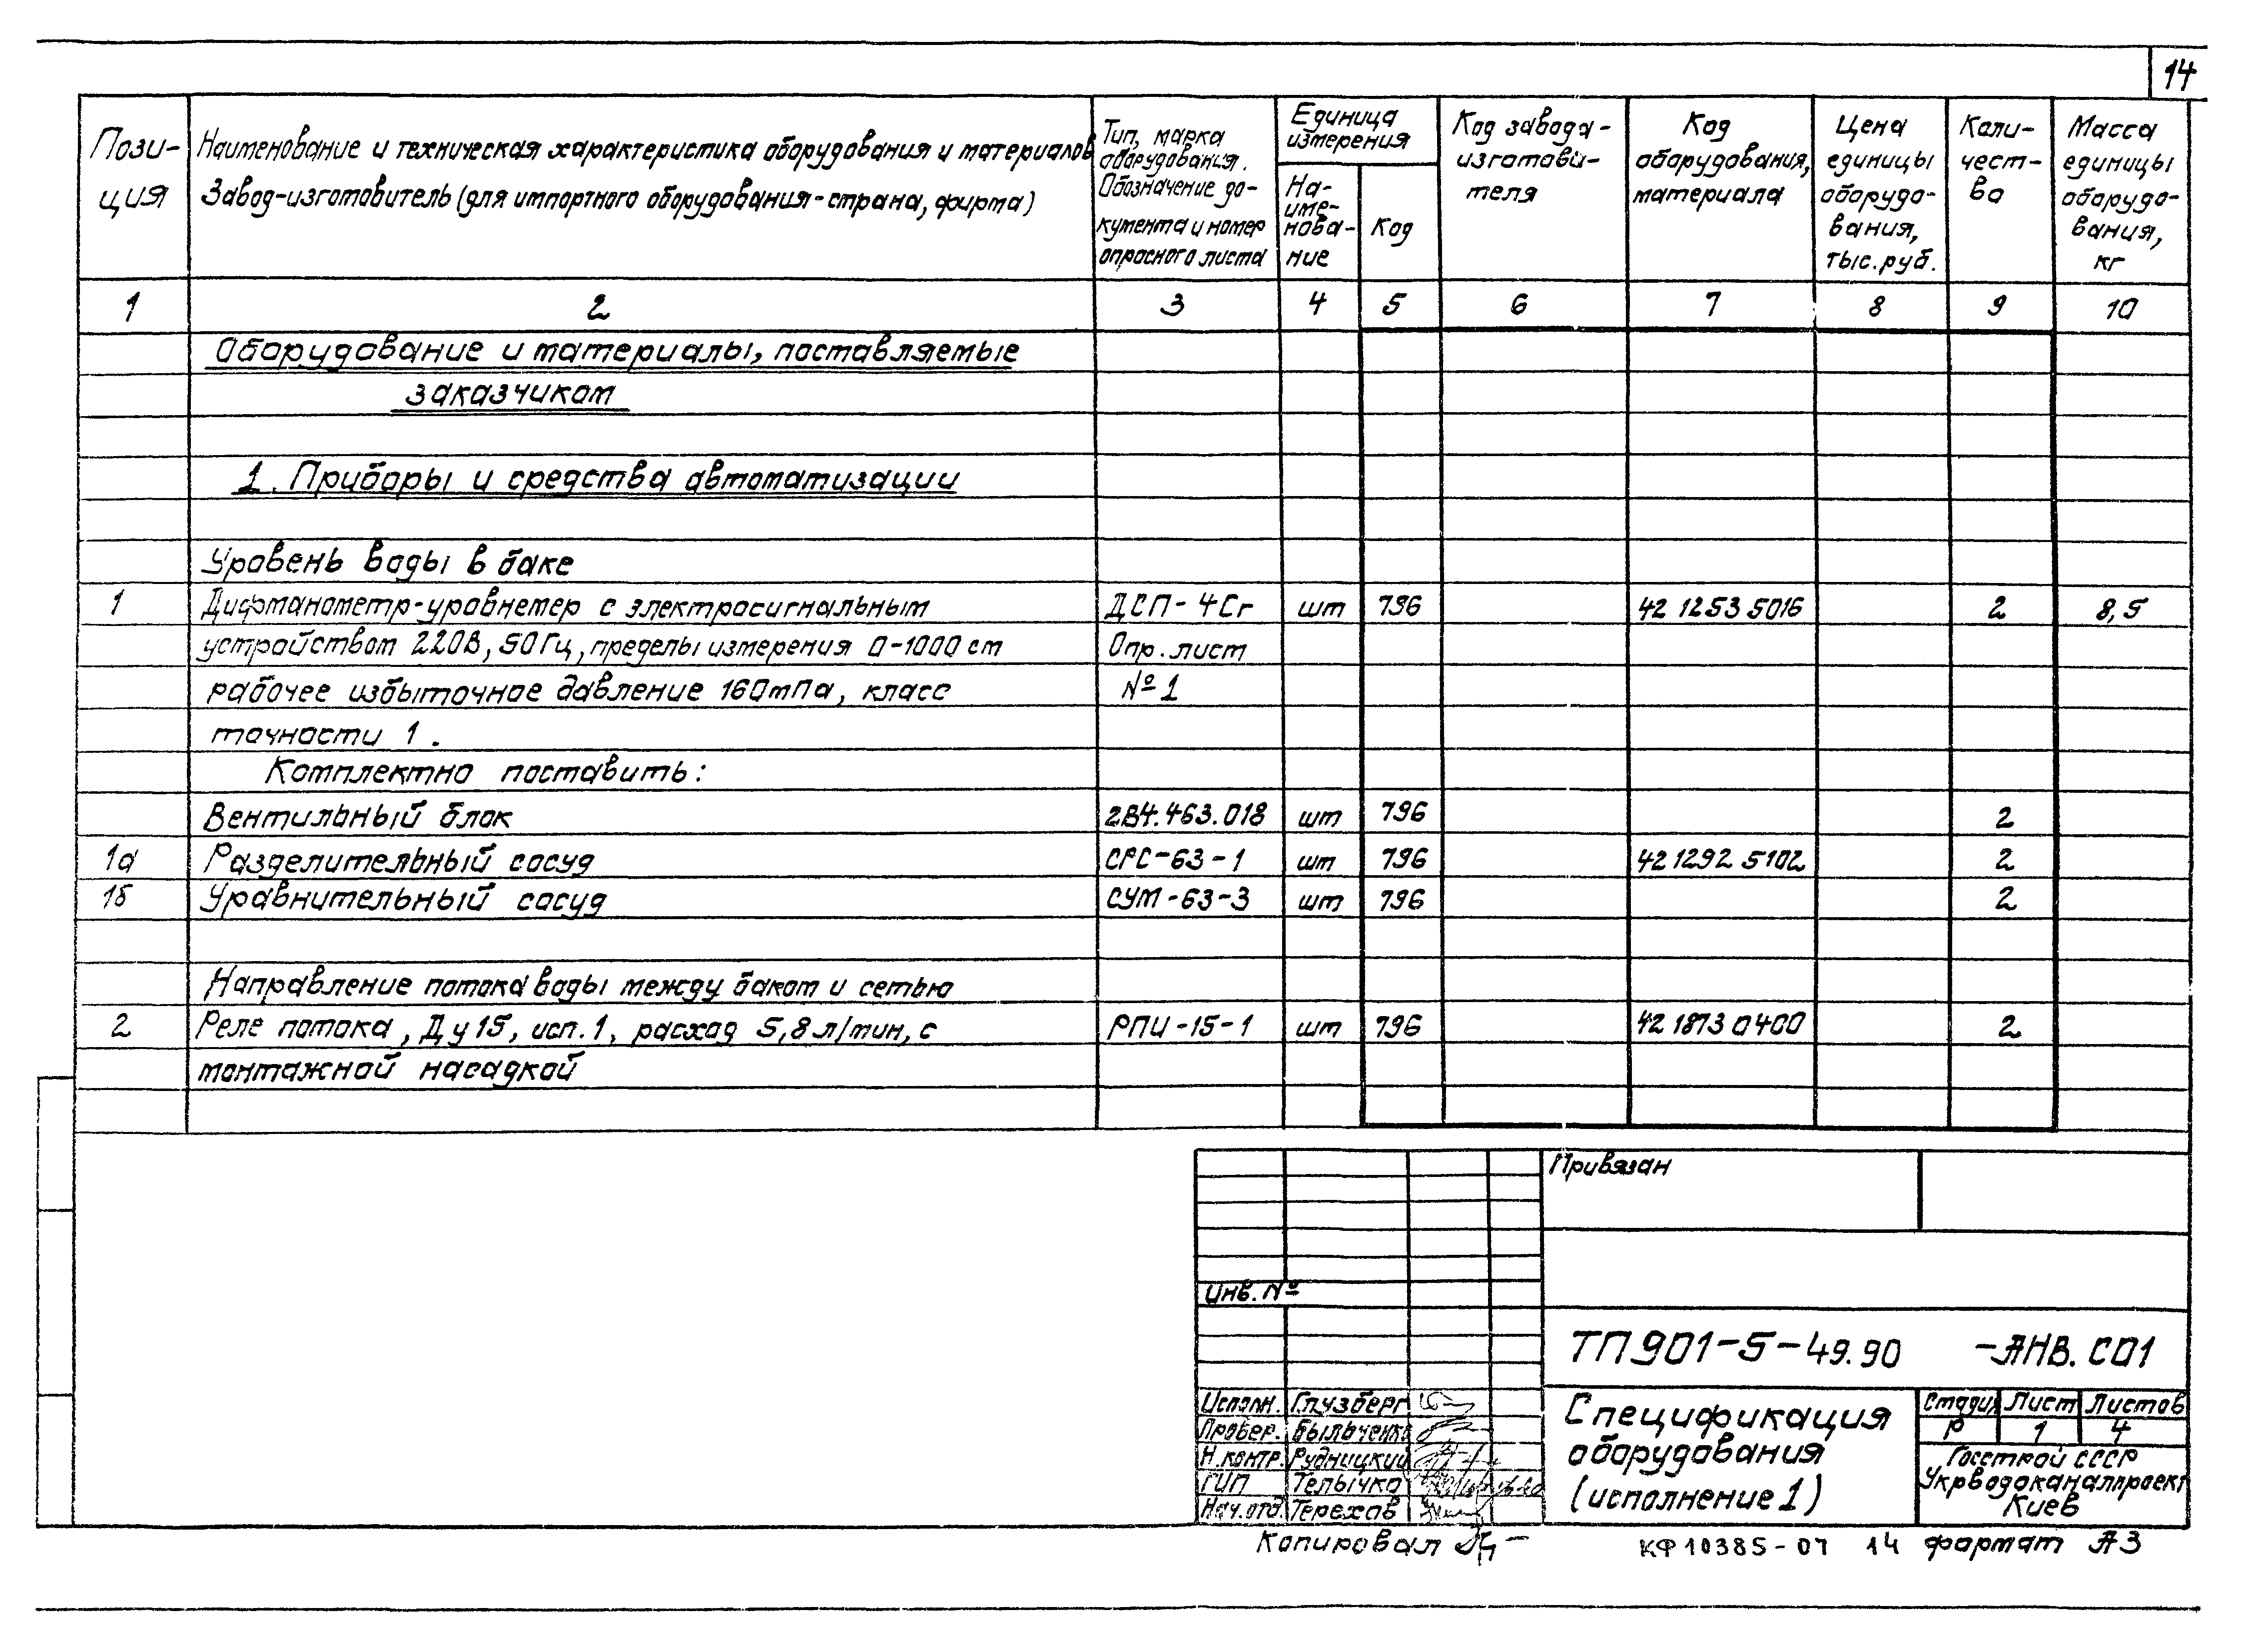 14
Пози-
ция
Наименование и техническая характеристика оборудования и материалов
Завод-изготовитель (для импортного оборудования - страна, фирма)
Тип, марка
оборудования.
Обозначение до-
кумента и номер
опросного листа
Единица
измерения
На-
име-
нова-
ние
Код
Код завода-
изготови-
теля
Код
оборудования,
материала
Цена
единицы
оборудо-
вания,
тыс. руб.
Коли-
чест-
во
Масса
единицы
оборудо-
вания,
кг
1 2 3 4 5 6 7 8 9 10
Оборудование и материалы, поставляемые
заказчиком
1. Приборы и средства автоматизации
Уровень воды в баке
1 Дифманометр-уровнемер с электросигнальным ДСП-4Сг шт 796 42 1253 5016 2 8,5
устройством 220В, 50Гц, пределы измерения 0-1000 см Опр. лист
рабочее избыточное давление 160мПа, класс №1
точности 1.
Комплектно поставить:
Вентильный блок 2В4.463.018 шт 796 2
1а Разделительный сосуд СРС-63-1 шт 796 42 1292 5102 2
1б Уравнительный сосуд СУМ-63-3 шт 796 2
Направление потока воды между баком и сетью
2 Реле потока, Ду15, исп.1, расход 5,8л/мин, с РПИ-15-1 шт 796 42 1873 0400 2
монтажной насадкой
Привязан
Инв. №
ТП 901-5-49.90 -АНВ.СО1
Исполн. Глузберг
Провер. Быльченко
Н.контр. Рудницкий
ГИП Телычко
Нач.отд. Терехов
Спецификация
оборудования
(исполнение 1)
Стадия Лист Листов
Р 1 4
Госстрой СССР
Укрводоканалпроект
Киев
Копировал
КФ 10385-07 14 формат А3